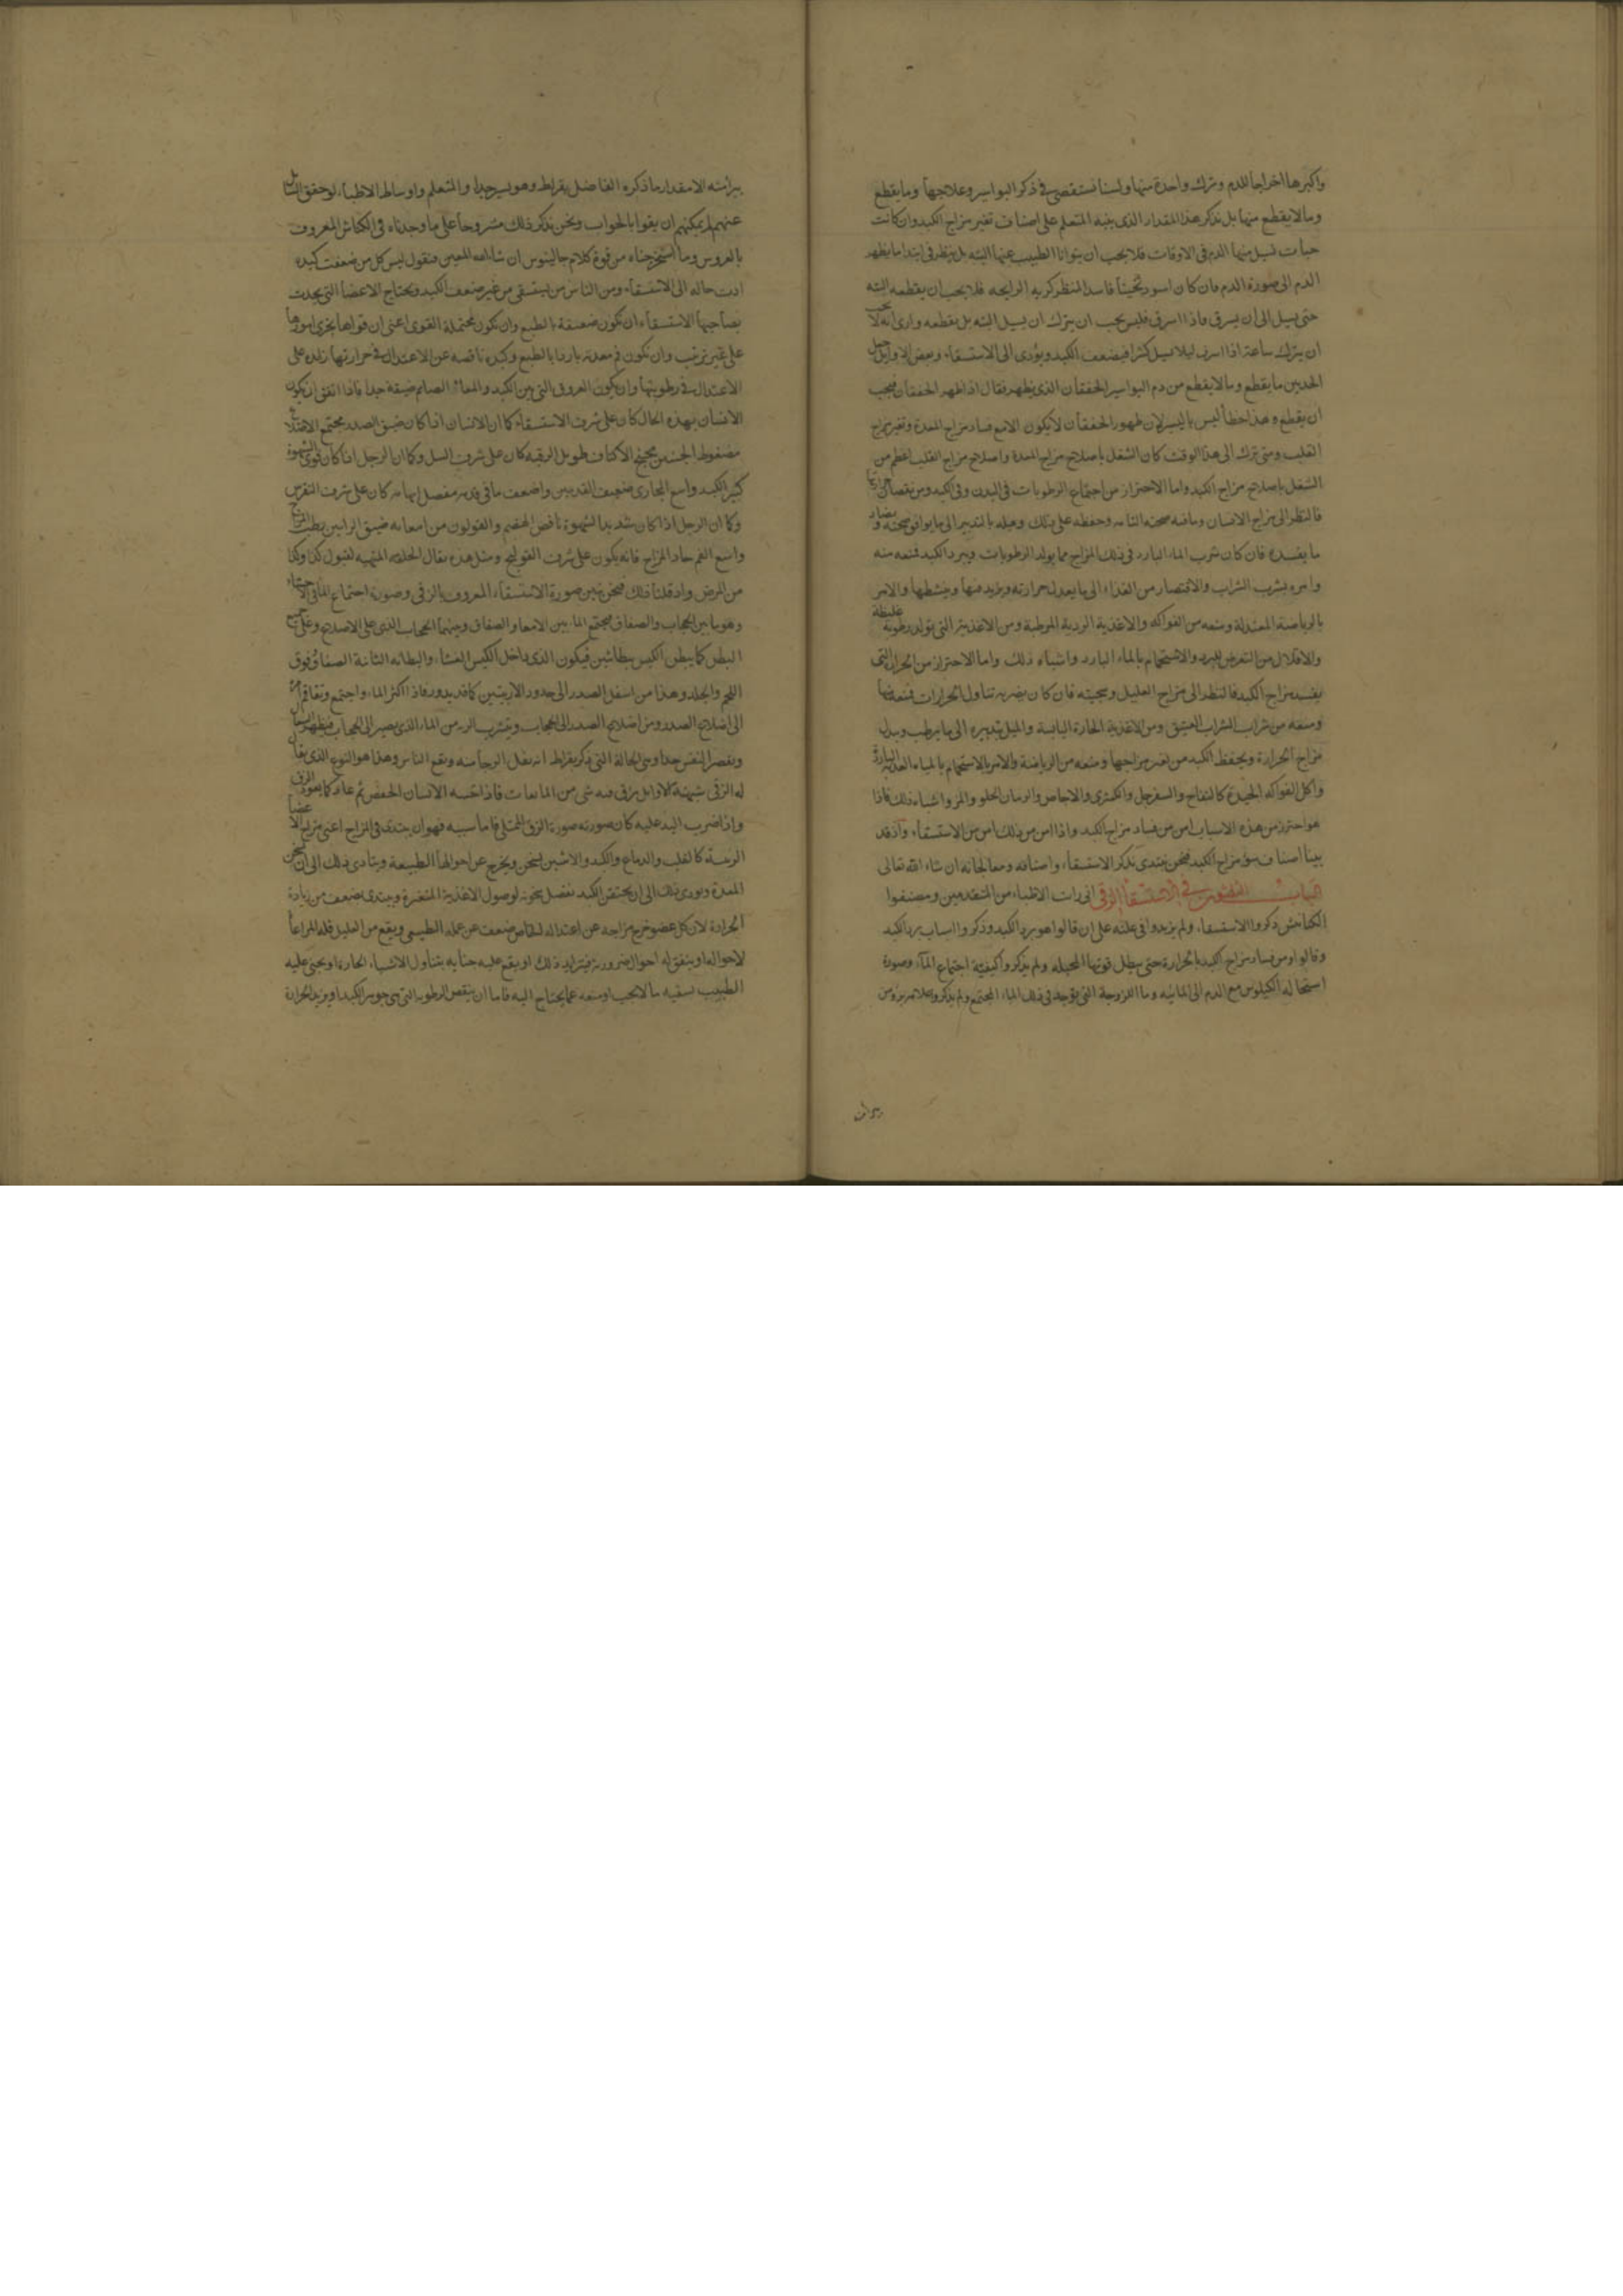 واكبرها اخراجا للدم وترك واحدة منها ولسنا نستقصي في ذكر البواسير وعلاجها وما يقطع
وما لا يقطع منها بل نذكر هذا المقدار الذي ينبه المتعلم على اصناف تغير مزاج الكبد وان كانت
حبات تسيل منها الدم في الاوقات فلا يجب ان يتوانا الطبيب عنها البته بل ينظر في ابتدا ما يظهر
الدم الى صورة الدم فان كان اسود ثخينا فاسد المنظر كريه الرايحه فلا يجب ان يقطعه البته
حتى يسيل الى ان يسرف فاذا اسرف فليس يجب ان يترك ان يسيل البته بل يقطعه وارى انه لا يجب
ان يترك ساعة اذا اسرف ليلا يسيل كثيرا فيضعف الكبد ويؤدى الى الاستسقاء وبعض الاوايل جعل
الحد بين ما يقطع وما لا يقطع من دم البواسير الخفقان الذي يظهر فقال اذا ظهر الخفقان فيجب
ان يقطع وهذا خطأ ليس باليسير لان ظهور الخفقان لا يكون الا مع فساد مزاج المعدة وتغير مزاج
القلب ومتى ترك الى هذا الوقت كان الشغل باصلاح مزاج المعدة واصلاح مزاج القلب اعظم من
الشغل باصلاح مزاج الكبد واما الاحتراز من اجتماع الرطوبات في البدن وفي الكبد ومن نقصان حرارتها
فالنظر الى مزاج الانسان وما فيه صحته التامه وحفظه على ذلك وميله بالتدبير الى ما يوافق صحته ويضاد
ما يفسده فان كان شرب الماء البارد في ذلك المزاج مما يولد الرطوبات ويبرد الكبد فمنعه منه
وامره بشرب الشراب والاقتصار من الغذاء الى ما يعدل حرارته ويزيد فيها وينشطها والامر
بالرياضة المعتدلة ومنعه من الفواكه والاغذية الردية المرطبة ومن الاغذية التي تولد رطوبة غليظة
والاقلال من التعرض للبرد والاستحمام بالماء البارد واشباه ذلك واما الاحتراز من الحرارة التي
يفسد مزاج الكبد فالنظر الى مزاج العليل وسجيته فان كان يضر به تناول الحرارات فمنعه منها
ومنعه من شراب الشراب العتيق ومن الاغذية الحارة اليابسة والميل بتدبيره الى ما يرطب ويبدل
مزاج الحرارة ويحفظ الكبد من تغير مزاجها ومنعه من الرياضة والامر بالاستحمام بالمياه العذبه الباردة
واكل الفواكه الجيدة كالتفاح والسفرجل والكمثرى والاجاص والرمان الحلو والمز واشباه ذلك فاذا
هو احترز من هذه الاسباب امن من فساد مزاج الكبد واذا امن من ذلك امن من الاستسقاء واذ قد
بينا اصناف سؤ مزاج الكبد فنحن نبتدى بذكر الاستسقاء واصنافه ومعالجاته ان شاء الله تعالى
الباب العشرون في الاستسقا الزقى انى رايت الاطباء من المتقدمين ومصنفوا
الكنانيش ذكروا الاستسقاء ولم يزيدوا في علته على ان قالوا هو برد الكبد وذكروا اسباب برد الكبد
وقالوا ومن فساد مزاج الكبد بالحرارة حتى يبطل قوتها المحيله ولم يذكروا كيفية اجتماع الماء وصورة
استحالة الكيلوس مع الدم الى المائيه وما اللزوجة التي توجد في ذلك الماء المجتمع ولم يذكروا علامة برؤه من
برأته
برأته الا مقدار ما ذكره الفاضل بقراط وهو يسير جدا والمتعلم واوساط الاطباء لو حقق السائل
عنهم لم يمكنهم ان يفوا بالجواب ونحن نذكر ذلك مشروحا على ما وجدناه في الكناش المعروف
بالعروس وما استخرجناه من قوة كلام جالينوس ان شا الله المعين فنقول ليس كل من ضعفت كبده
ادت حاله الى الاستسقاء ومن الناس من يستسقى من غير ضعف الكبد ويحتاج الاعضا التي يحدث
بصاحبها الاستسقاء ان تكون ضعيفة بالطبع وان تكون محتملة القوى اعنى ان قواها يجرى امورها
على غير ترتيب وان تكون فم معدته باردا بالطبع وكبده ناقصه عن الاعتدال في حرارتها زايده على
الاعتدال في رطوبتها وان يكون العروق التي بين الكبد والمعاء الصائم ضيقة جدا فاذا اتفق ان يكون
الانسان بهذه الحال كان على شرف الاستسقاء كما ان الانسان اذا كان ضيق الصدر مجتمع الاضلاع
مضغوط الجنبين مجنح الاكتاف طويل الرقبه كان على شرف السل وكما ان الرجل اذا كان قوى الشهوة
كبير الكبد واسع المجارى ضعيف القدمين واضعف ما في قدميه مفصل ابهامه كان على شرف النقرس
وكما ان الرجل اذا كان شديد الشهوة ناقص الهضم والقولون من امعائه ضيق الرأسين رطب المزاج
واسع الفم حاد المزاج فانه يكون على شرف القولنج ومثل هذه يقال الخلقه المتهيه لقبول كذا وكذا
من المرض واذ قلنا ذلك فنحن نبين صورة الاستسقاء المعروف بالزقى وصورة اجتماع الماء في الاحشاء
وهو ما بين الحجاب والصفاق مجتمع الماء بين الامعا والصفاق وبينهما الحجاب الذي على الاضلاع وعلى جميع
البطن كما يبطن الكيس ببطانتين فيكون الذي داخل الكيس الغشاء والبطانه الثانية الصفاق فوق
اللحم والجلد وهذا من اسفل الصدر الى حدود الاربيتين كما قد يدور فاذا اكثر الماء واجتمع وتفاقم امره
الى اضلاع الصدر ومن اضلاع الصدر الى الحجاب ويتشرب الرئه من الماء الذي يصير الى الحجاب فيظهر السعال
ويقصر النفس جدا وهي الحالة التي ذكر بقراط انه يقل الرجا منه ويقع الناس وهذا هو النوع الذي يقال
له الزقى شبهته الاوايل بزق فيه شى من المائعات فاذا غمسه الانسان انخفض ثم عاد كما يعود الزق
واذا ضرب اليد عليه كان صورته صورة الزق الممتلى فاما سببه فهو ان يبتدى في المزاج اعنى مزاج الاعضا
الرئيسة كالقلب والدماغ والكبد والانثيين يسخن ويخرج عن احوالها الطبيعة ويتادى ذلك الى ان يسخن
المعدة ويودى ذلك الى ان يحتقن الكبد بفضل سخونه لوصول الاغذية المتغيرة ويبتدى يضعف من زيادة
الحرارة لان كل عضو خرج مزاجه عن اعتداله الخاص ضعف عن عمله الطبيعى ويقع من العليل قلة المراعاة
لاحواله او يتفق له احوال ضرورية فيتزايد ذلك او يقع عليه جنايه بتناول الاشياء الحاره او يجنى عليه
الطبيب بسقيه ما لا يجب او منعه عما يحتاج اليه فاما ان ينقص الرطوبة التي هي جوهر الكبد او يزيد الحرارة